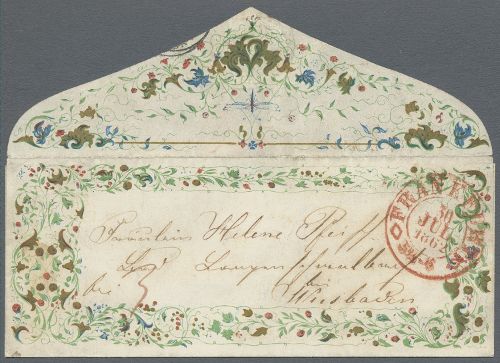 Fräulein Helene Pfeiff
Langenschwalbach
bei Wiesbaden
FRANKFURT
30
JUL
1862